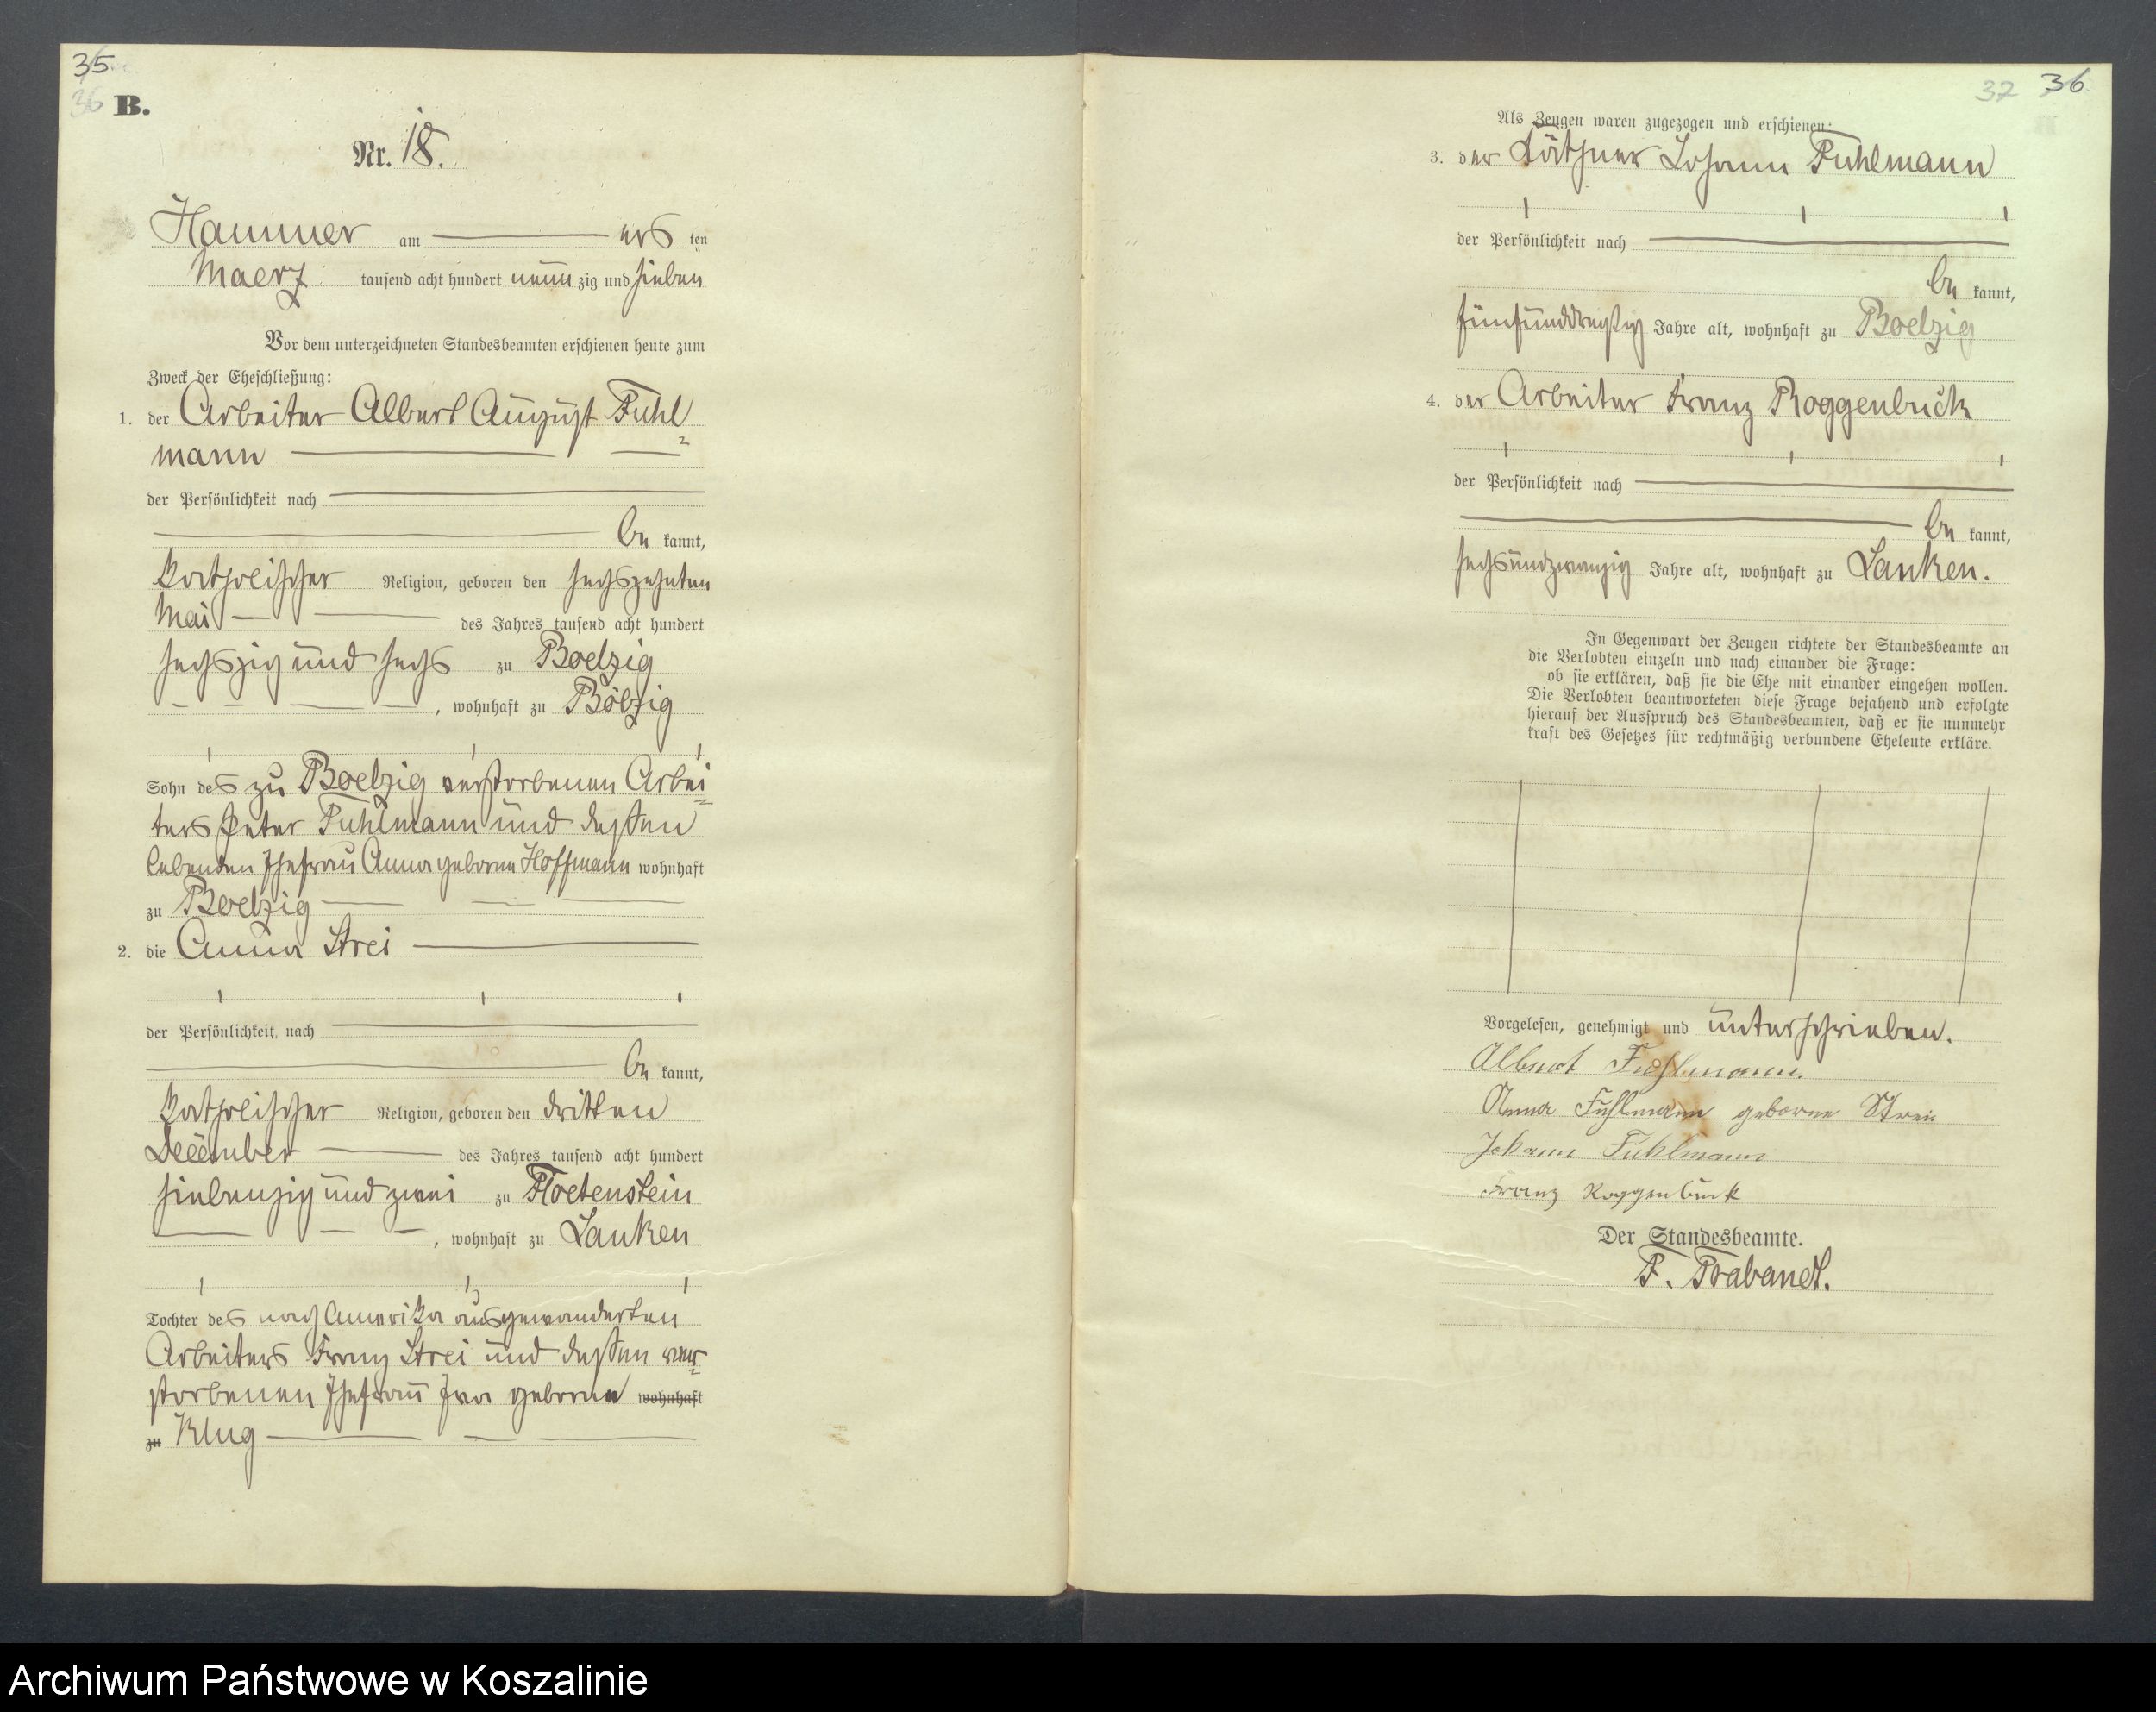 35
36
B.
Nr. 18.
Hammer am ers ten
Maerz tausend acht hundert neun zig und sieben
Vor dem unterzeichneten Standesbeamten erschienen heute zum
Zweck der Eheschließung:
1. der Arbeiter Albert August Fuhl=
mann
der Persönlichkeit nach
be kannt,
katholischer Religion, geboren den sechszehnten
Mai des Jahres tausend acht hundert
sechszig und sechs zu Boelzig
, wohnhaft zu Bölzig
Sohn des zu Boelzig verstorbenen Arbei=
ters Peter Fuhlmann und dessen
lebenden Ehefrau Anna geborne Hoffmann wohnhaft
zu Boelzig
2. die Anna Strei
der Persönlichkeit nach
be kannt,
katholischer Religion, geboren den dritten
December des Jahres tausend acht hundert
siebenzig und zwei zu Floetenstein
, wohnhaft zu Lanken
Tochter des nach Amerika ausgewanderten
Arbeiters Franz Strei und dessen ver=
storbenen Ehefrau Eva geborne wohnhaft
zu Klug
37 36
Als Zeugen waren zugezogen und erschienen:
3. der Käthner Johann Fuhlmann
der Persönlichkeit nach
be kannt,
fünfunddreißig Jahre alt, wohnhaft zu Boelzig
4. der Arbeiter Franz Roggenbuck
der Persönlichkeit nach
be kannt,
sechsundzwanzig Jahre alt, wohnhaft zu Lanken.
In Gegenwart der Zeugen richtete der Standesbeamte an
die Verlobten einzeln und nach einander die Frage:
ob sie erklären, daß sie die Ehe mit einander eingehen wollen.
Die Verlobten beantworteten diese Frage bejahend und erfolgte
hierauf der Ausspruch des Standesbeamten, daß er sie nunmehr
kraft des Gesetzes für rechtmäßig verbundene Eheleute erkläre.
Vorgelesen, genehmigt und unterschrieben.
Albert Fuhlmann.
Anna Fuhlmann geborne Strei
Johann Fuhlmann
Franz Roggenbuck
Der Standesbeamte.
F. Trabandt.
Archiwum Państwowe w Koszalinie